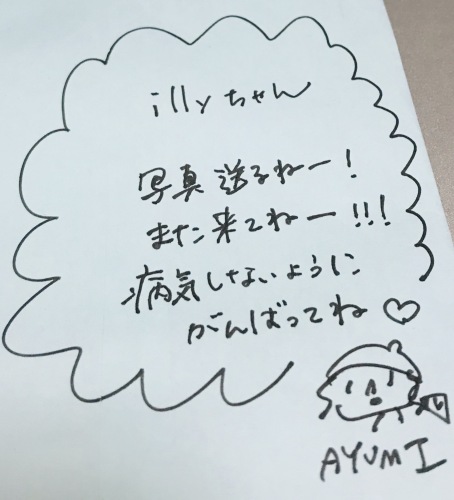 illyちゃん
写真送るねー！
また来てねー!!!
病気しないように
がんばってね♡
AYUMI